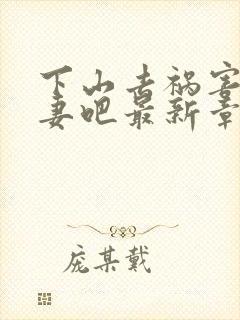 下山去祸害
妻吧最新章
庞某戴